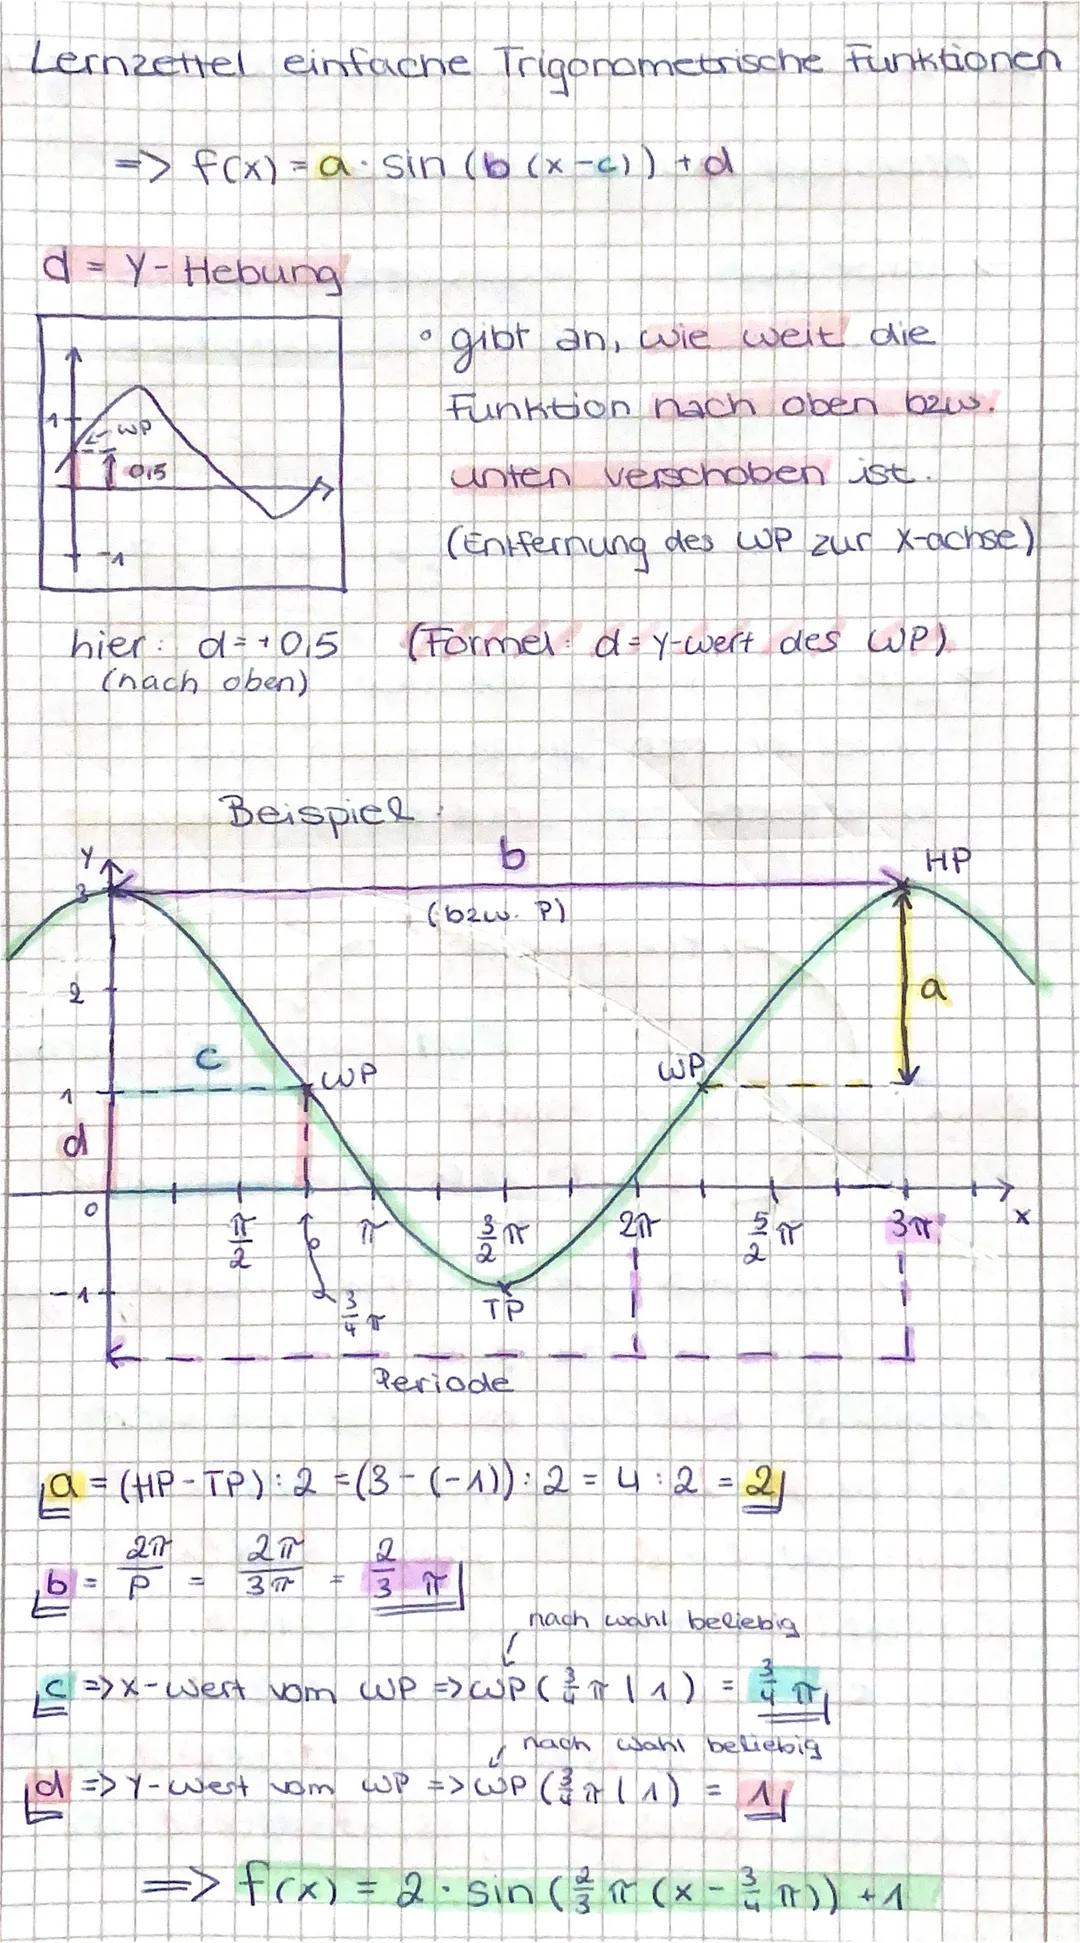 Lernzettel einfache Trigonometrische Funktionen
=> f(x) = a · sin (b (x-c)) + d
d = Y-Hebung
◦ gibt an, wie weit die
Funktion nach oben bzw.
unten verschoben ist.
(Entfernung des WP zur x-achse)
1
WP
0,5
-1
hier: d=+0,5 (Formel: d=Y-wert des WP)
(nach oben)
Beispiel:
Y
b
HP
3
(bzw. P)
2
a
c
WP
WP
1
d
0
π/2
π
3/2 π
2π
5/2 π
3π
x
3/4 π
-1
TP
Periode
a = (HP-TP) : 2 = (3-(-1)) : 2 = 4 : 2 = 2
b = 2π/P = 2π/3π = 2/3 π
nach wahl beliebig
c => x-wert vom WP => WP (3/4 π | 1) = 3/4 π
nach wahl beliebig
d => Y-wert vom WP => WP (3/4 π | 1) = 1
=> f(x) = 2 · sin (2/3 π (x - 3/4 π)) + 1